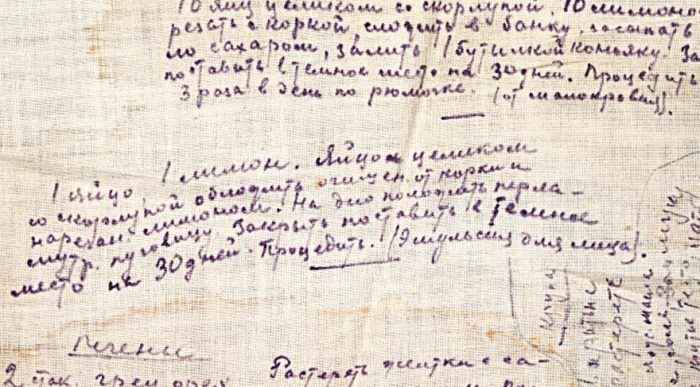 10 яиц целиком со скорлупой. 10 лимоно
резать с коркой, сложить в банку. засыпать
ло сахаром, залить 1 бутылкой коньяку. За
поставить в темное место на 30 дней. Процедить
3 раза в день по рюмочке. (от малокровия).
1 яйцо, 1 лимон. Яйцо целиком
со скорлупой обложить очищен. от корки и
нарезан. лимоном. На дно положить перла-
мутр. пуговицу. Закрыть поставить в темное
место на 30 дней. Процедить. (Эмульсия для лица).
Печенье
2 стак. грец. орех. Растереть желтки с са-